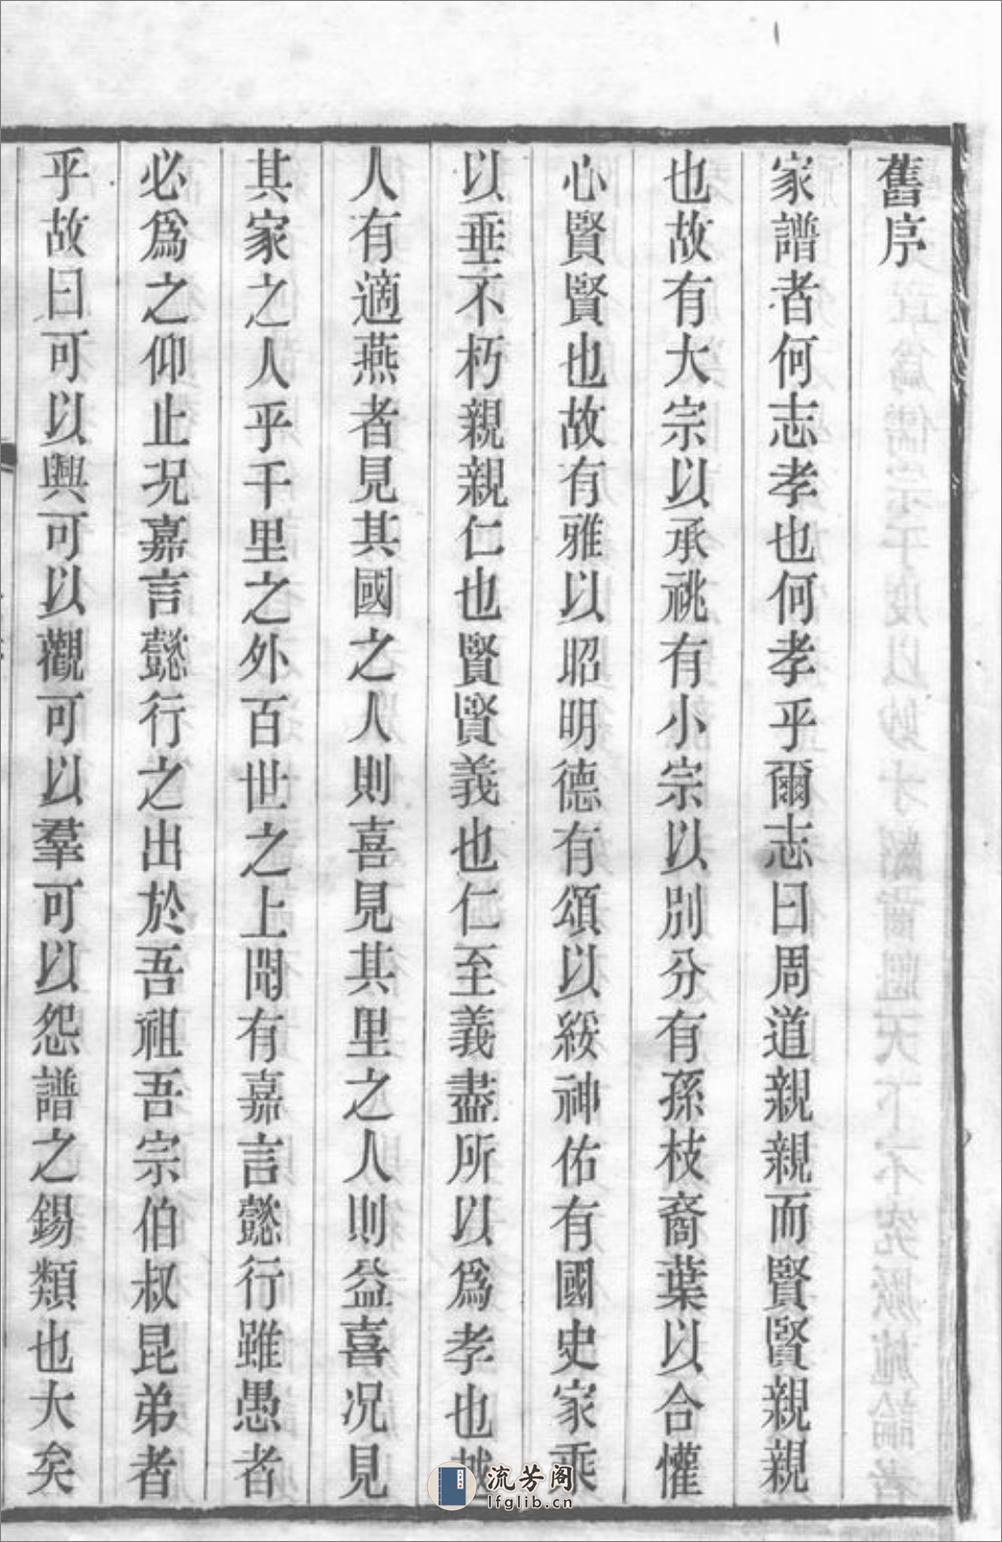 舊序
家譜者何志孝也何孝乎爾志曰周道親親而賢賢親親
也故有大宗以承祧有小宗以別分有孫枝裔葉以合懽
心賢賢也故有雅以昭明德有頌以綏神佑有國史家乘
以垂不朽親親仁也賢賢義也仁至義盡所以爲孝也越
人有適燕者見其國之人則喜見其里之人則益喜况見
其家之人乎千里之外百世之上聞有嘉言懿行雖愚者
必爲之仰止况嘉言懿行之出於吾祖吾宗伯叔昆弟者
乎故曰可以興可以觀可以羣可以怨譜之錫類也大矣
流芳阁
lfglib.cn